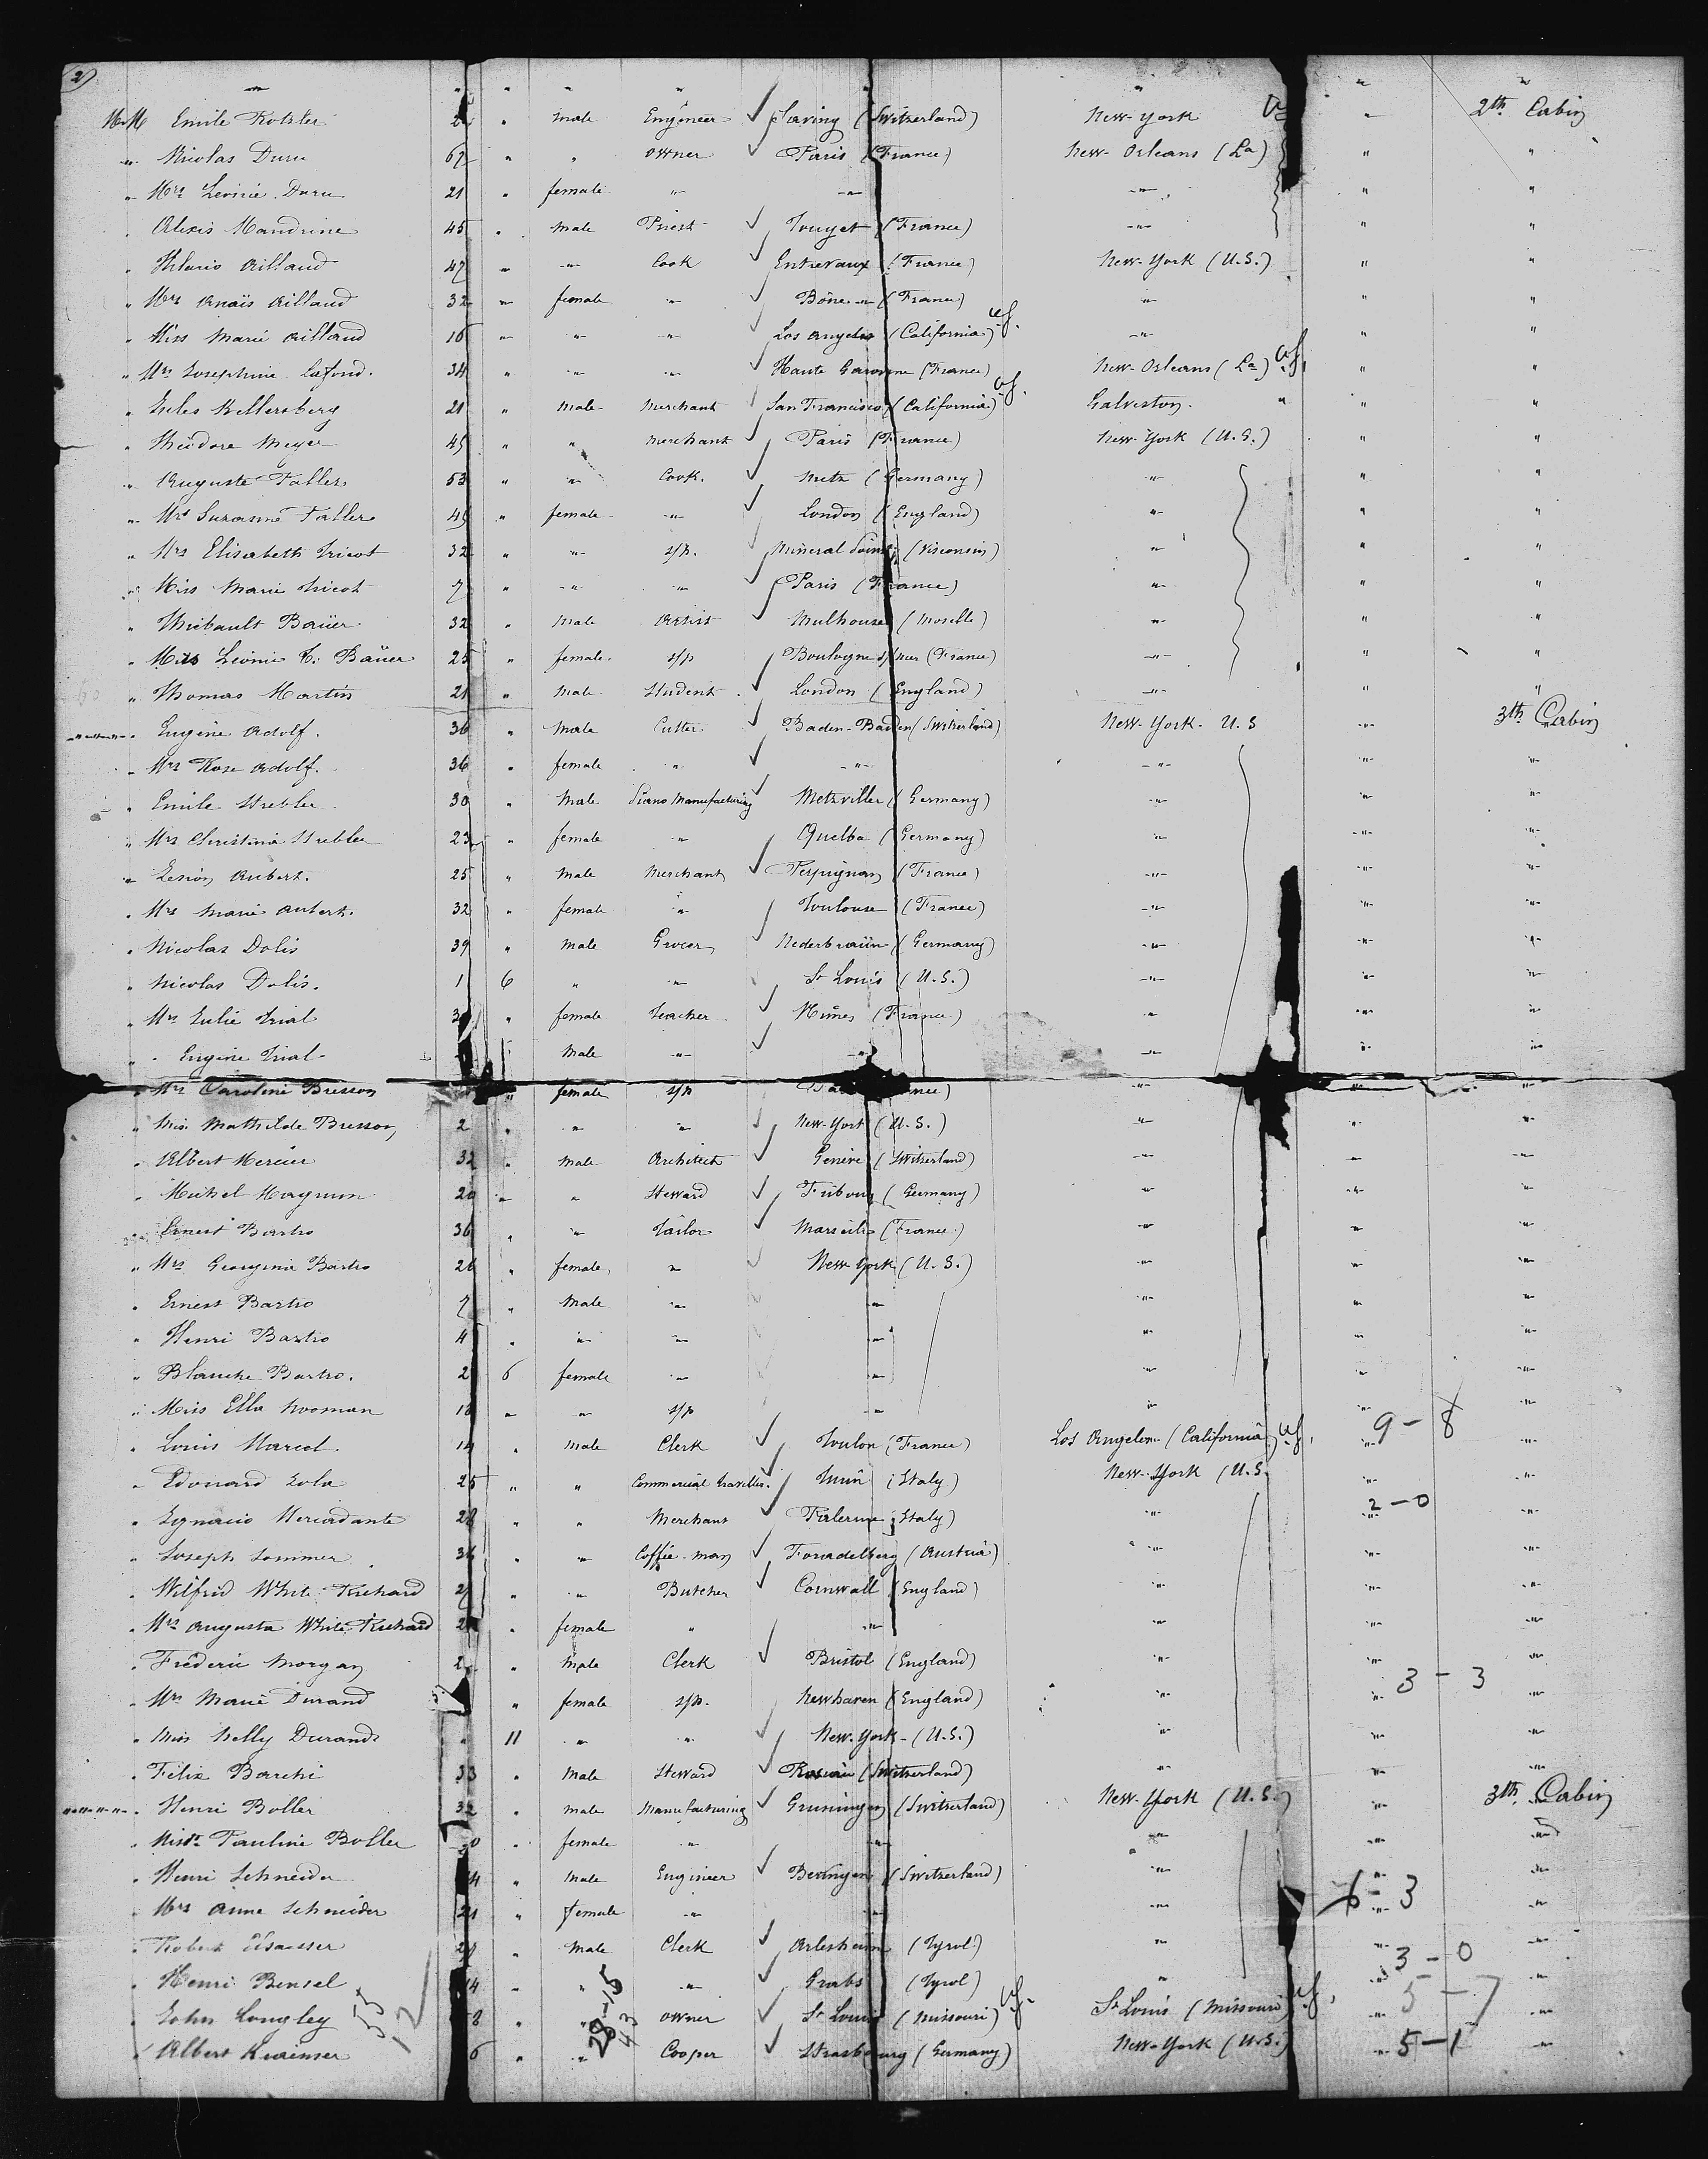 (2)
" " " " " " " " "
MM Emile Rotzler " male Engineer (Switzerland) New-York " 2th Cabin
" Nicolas Duru 67 " " owner Paris (France) New-Orleans (La) " "
" Mrs Leonie Duru 21 " female " " " " "
" Alexis Mandrine 45 " male Priest Touget (France) " " "
" Hilario Ailland 47 " " Cook Entrevaux (France) New-York (U.S.) " "
" Mrs Anaïs Ailland 32 " female " Bône " (France) " " "
" Miss Marie Ailland 16 " " " Los Angeles (California) " " "
" Mrs Josephine Lafond. 34 " " " Haute Garonne (France) New-Orleans (La) " "
" Jules Kellersberg 21 " male Merchant San Francisco (California) Galveston. " " "
" Théodore Meyer 45 " " merchant Paris (France) New-York (U.S.) " "
" Auguste Faller 53 " " Cook. Metz (Germany) " " "
" Mrs Suzanne Faller 45 " female " London (England) " " "
" Mrs Elisabeth Tricot 32 " " s/p. Mineral Point (Wisconsin) " " "
" Miss Marie Tricot 7 " " " Paris (France) " " "
" Thiebault Baüer 32 " male Artist Mulhouse (Moselle) " " "
" Mrs Léonie C. Baüer 25 " female. s/p Boulogne s/mer (France) " " "
" Thomas Martin 21 " male Student London (England) " " "
" Eugène Adolf. 36 " male Cutter Baden-Baden (Switzerland) New-York-U.S " 3th Cabin
" Mrs Rose Adolf. 36 " female " " " " "
" Emile Strebler 30 " male Piano Manufacturing Metzviller (Germany) " " "
" Mrs Christina Strebler 23 " female " Quelba (Germany) " " "
" Léon Aubert. 25 " male Merchant Perpignan (France) " " "
" Mrs Marie Aubert. 32 " female " Toulouse (France) " " "
" Nicolas Dolis 39 " male Grocer Nederbraün (Germany) " " "
" Nicolas Dolis. 1 6 " " St Louis (U.S.) " " "
" Mrs Julie Trial " female Teacher Nîmes (France) " " "
" Eugène Trial " male " " " " "
" Mrs Caroline Bresson " female s/p " " "
" Miss Mathilde Bresson, 2 " " " New-York (U.S.) " " "
" Albert Mercier 32 " male Architect Genève (Switzerland) " " "
" Michel Magnum 20 " " Steward Fribourg (Germany) " " "
" Ernest Bastro 36 " " Tailor Marseille (France) " " "
" Mrs Georgina Bastro 26 " female " New-York (U.S.) " " "
" Ernest Bastro 7 " male " " " " "
" Henri Bastro 4 " " " " " " "
" Blanche Bastro. 2 6 female " " " " "
" Miss Ella Nooman 18 " " s/p " " " "
" Louis Marcel. 14 " male Clerk Toulon (France) Los Angeles (California) " 9-8 "
" Edouard Zola 25 " " Commercial traveller. Turin (Italy) New-York (U.S. " "
" Ignacio Mercadante 28 " " Merchant Palerme (Italy) " " 2-0 "
" Joseph Sommer 36 " " Coffee-man (Austria) " " "
" Wilfrid White-Richard 27 " " Butcher Cornwall (England) " " "
" Mrs Augusta White-Richard " female " " " " "
" Fréderic Morgan " male Clerk Bristol (England) " " "
" Mrs Marie Durand " female s/p. Newhaven (England) " " 3-3 "
" Miss Nelly Durand " 11 " " New-York-(U.S.) " " "
" Félix Barchi 33 " male Steward (Switzerland) " " "
" Henri Boller 32 " male Manufacturing Gruningen (Switzerland) New-York (U.S.) " 3th Cabin
" Pauline Boller " female " " " " "
" Henri Schneider " male Engineer Beringen (Switzerland) " " "
" Mrs Anne Schneider 21 " female " " " " 6-3 "
" Robert Elsaesser " male Clerk Arlesheim (Tyrol) " " "
" Henri Bensel " " " Grabs (Tyrol) " " 3-0 "
" John Longley " " owner St Louis (Missouri) St Louis (Missouri) " 5-7 "
" Albert " " Cooper Strasbourg (Germany) New-York (U.S.) " 5-1 "
55
12
28-15
43